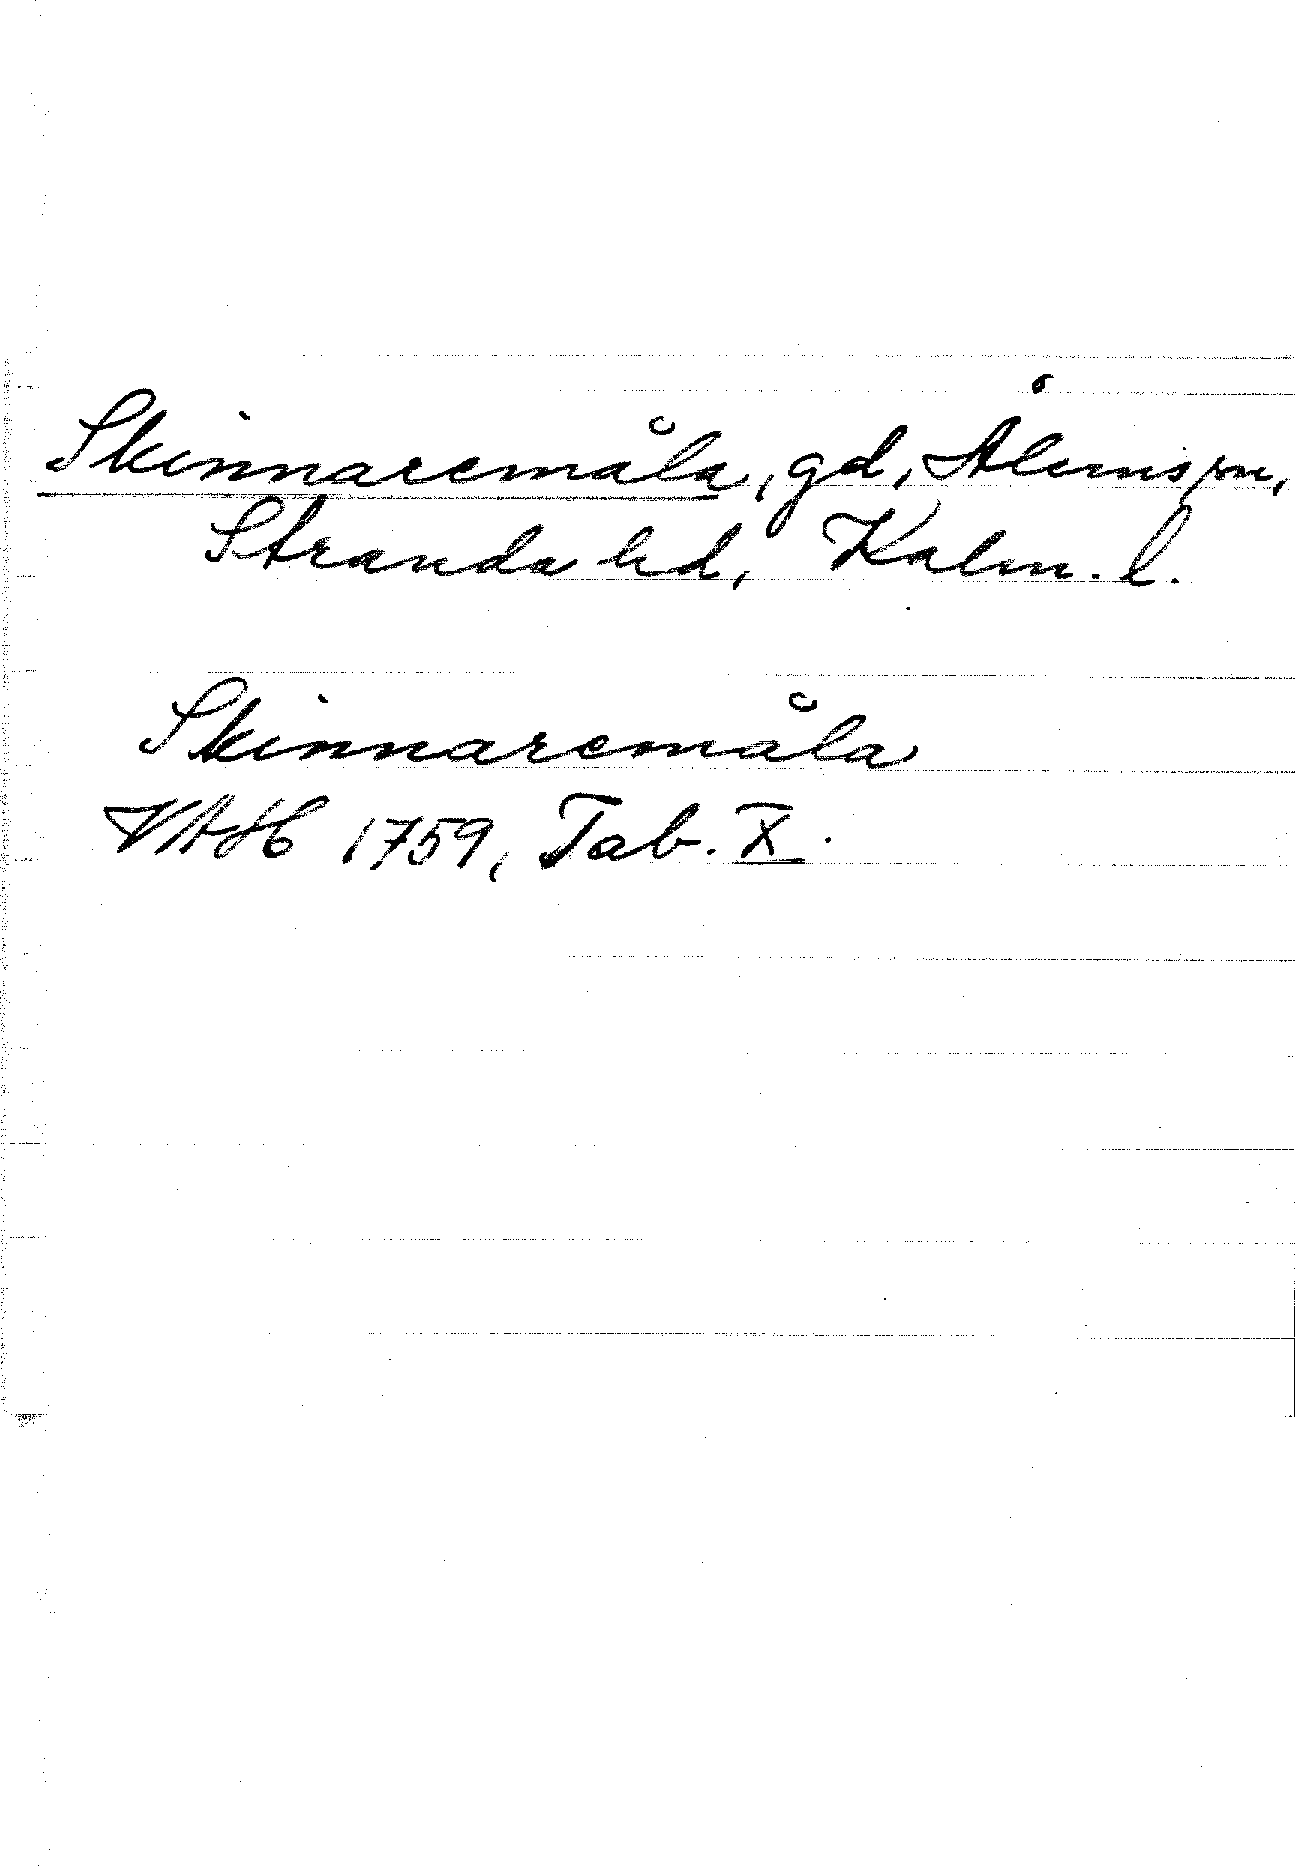 Skinnaremåla, gd, Ålems sn,
Stranda hd, Kalm. l.
Skinnaremåla
VAH 1759, Tab. X.